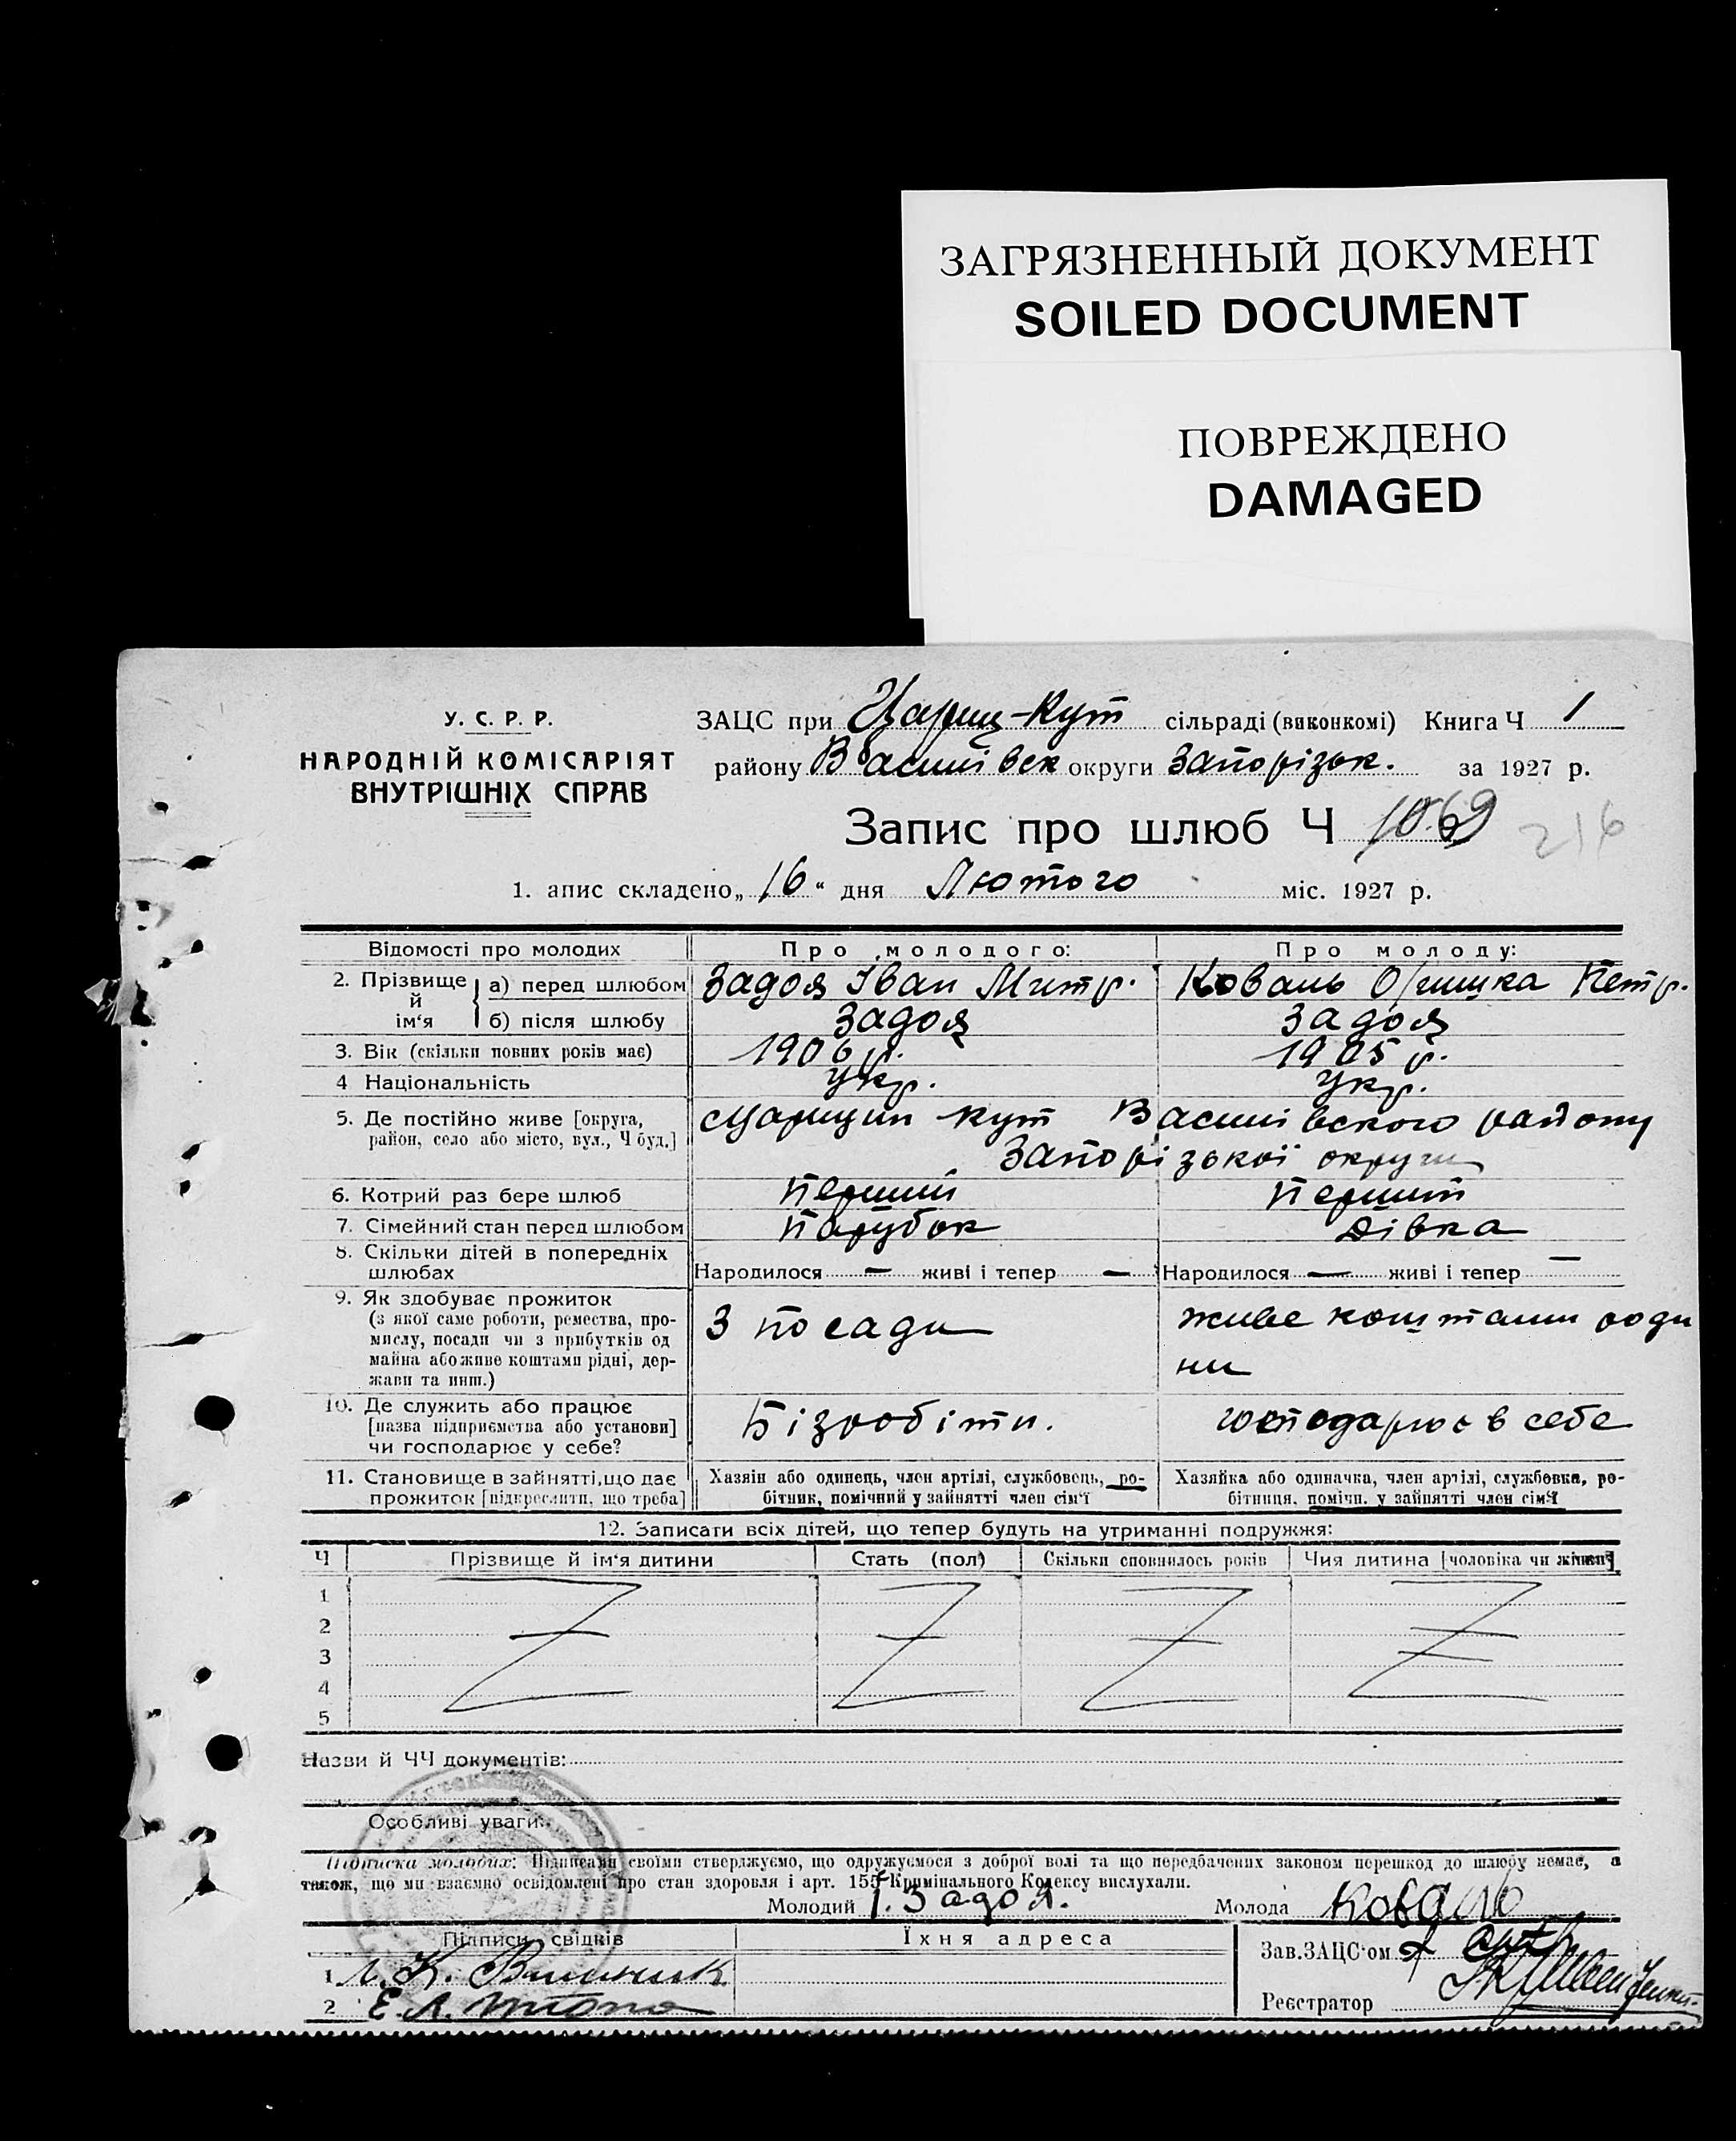 ЗАГРЯЗНЕННЫЙ ДОКУМЕНТ
SOILED DOCUMENT
ПОВРЕЖДЕНО
DAMAGED
У. С. Р. Р.
НАРОДНІЙ КОМІСАРІЯТ
ВНУТРІШНІХ СПРАВ
ЗАЦС при Цариц-Кут сільраді (виконкомі) Книга Ч 1
району Василівек округи Запорізьк. за 1927 р.
Запис про шлюб Ч
216
1. апис складено „16“ дня Лютого міс. 1927 р.
Відомості про молодих Про молодого: Про молоду:
2. Прізвище й ім‘я а) перед шлюбом Задоя Іван Митр. Коваль Оришка Петр.
б) після шлюбу Задоя Задоя
3. Вік (скільки повних років має) 1906 р. 1905 р.
4 Національність Укр. Укр.
5. Де постійно живе [округа, район, село або місто, вул., Ч буд.] Царицин кут Василівського району
Запорізької округи
6. Котрий раз бере шлюб Перший Перший
7. Сімейний стан перед шлюбом Парубок Дівка
8. Скільки дітей в попередніх шлюбах Народилося — живі і тепер — Народилося — живі і тепер —
9. Як здобуває прожиток
(з якої саме роботи, ремества, про-
мислу, посади чи з прибутків од
майна або живе коштами рідні, дер-
жави та инш.)
З посади
живе коштами роди
ни
10. Де служить або працює
[назва підприємства або установи]
чи господарює у себе?
Бізробітн.
господарює в себе
11. Становище в зайнятті, що дає
прожиток [підкреслити, що треба]
Хазяін або одинець, член артілі, службовець, ро-
бітник, помічний у зайнятті член сім‘ї
Хазяйка або одиначка, член артілі, службовка, ро-
бітниця, помічн. у зайнятті член сім‘ї
12. Записати всіх дітей, що тепер будуть на утриманні подружжя:
Ч Прізвище й ім‘я дитини Стать (пол) Скільки сповнилось років Чия дитина [чоловіка чи жінки]
1
2
3
4
5
Назви й ЧЧ документів:
Особливі уваги:
Підписка молодих: Підписами своїми стверджуємо, що одружуємося з доброї волі та що передбачених законом перешкод до шлюбу немає, а
також, що ми взаємно освідомлені про стан здоровля і арт. 155 Кримінального Кодексу вислухали.
Молодий І. Задоя. Молода Коваль
Підписи свідків Їхня адреса Зав. ЗАЦС‘ом
1
2 Реєстратор